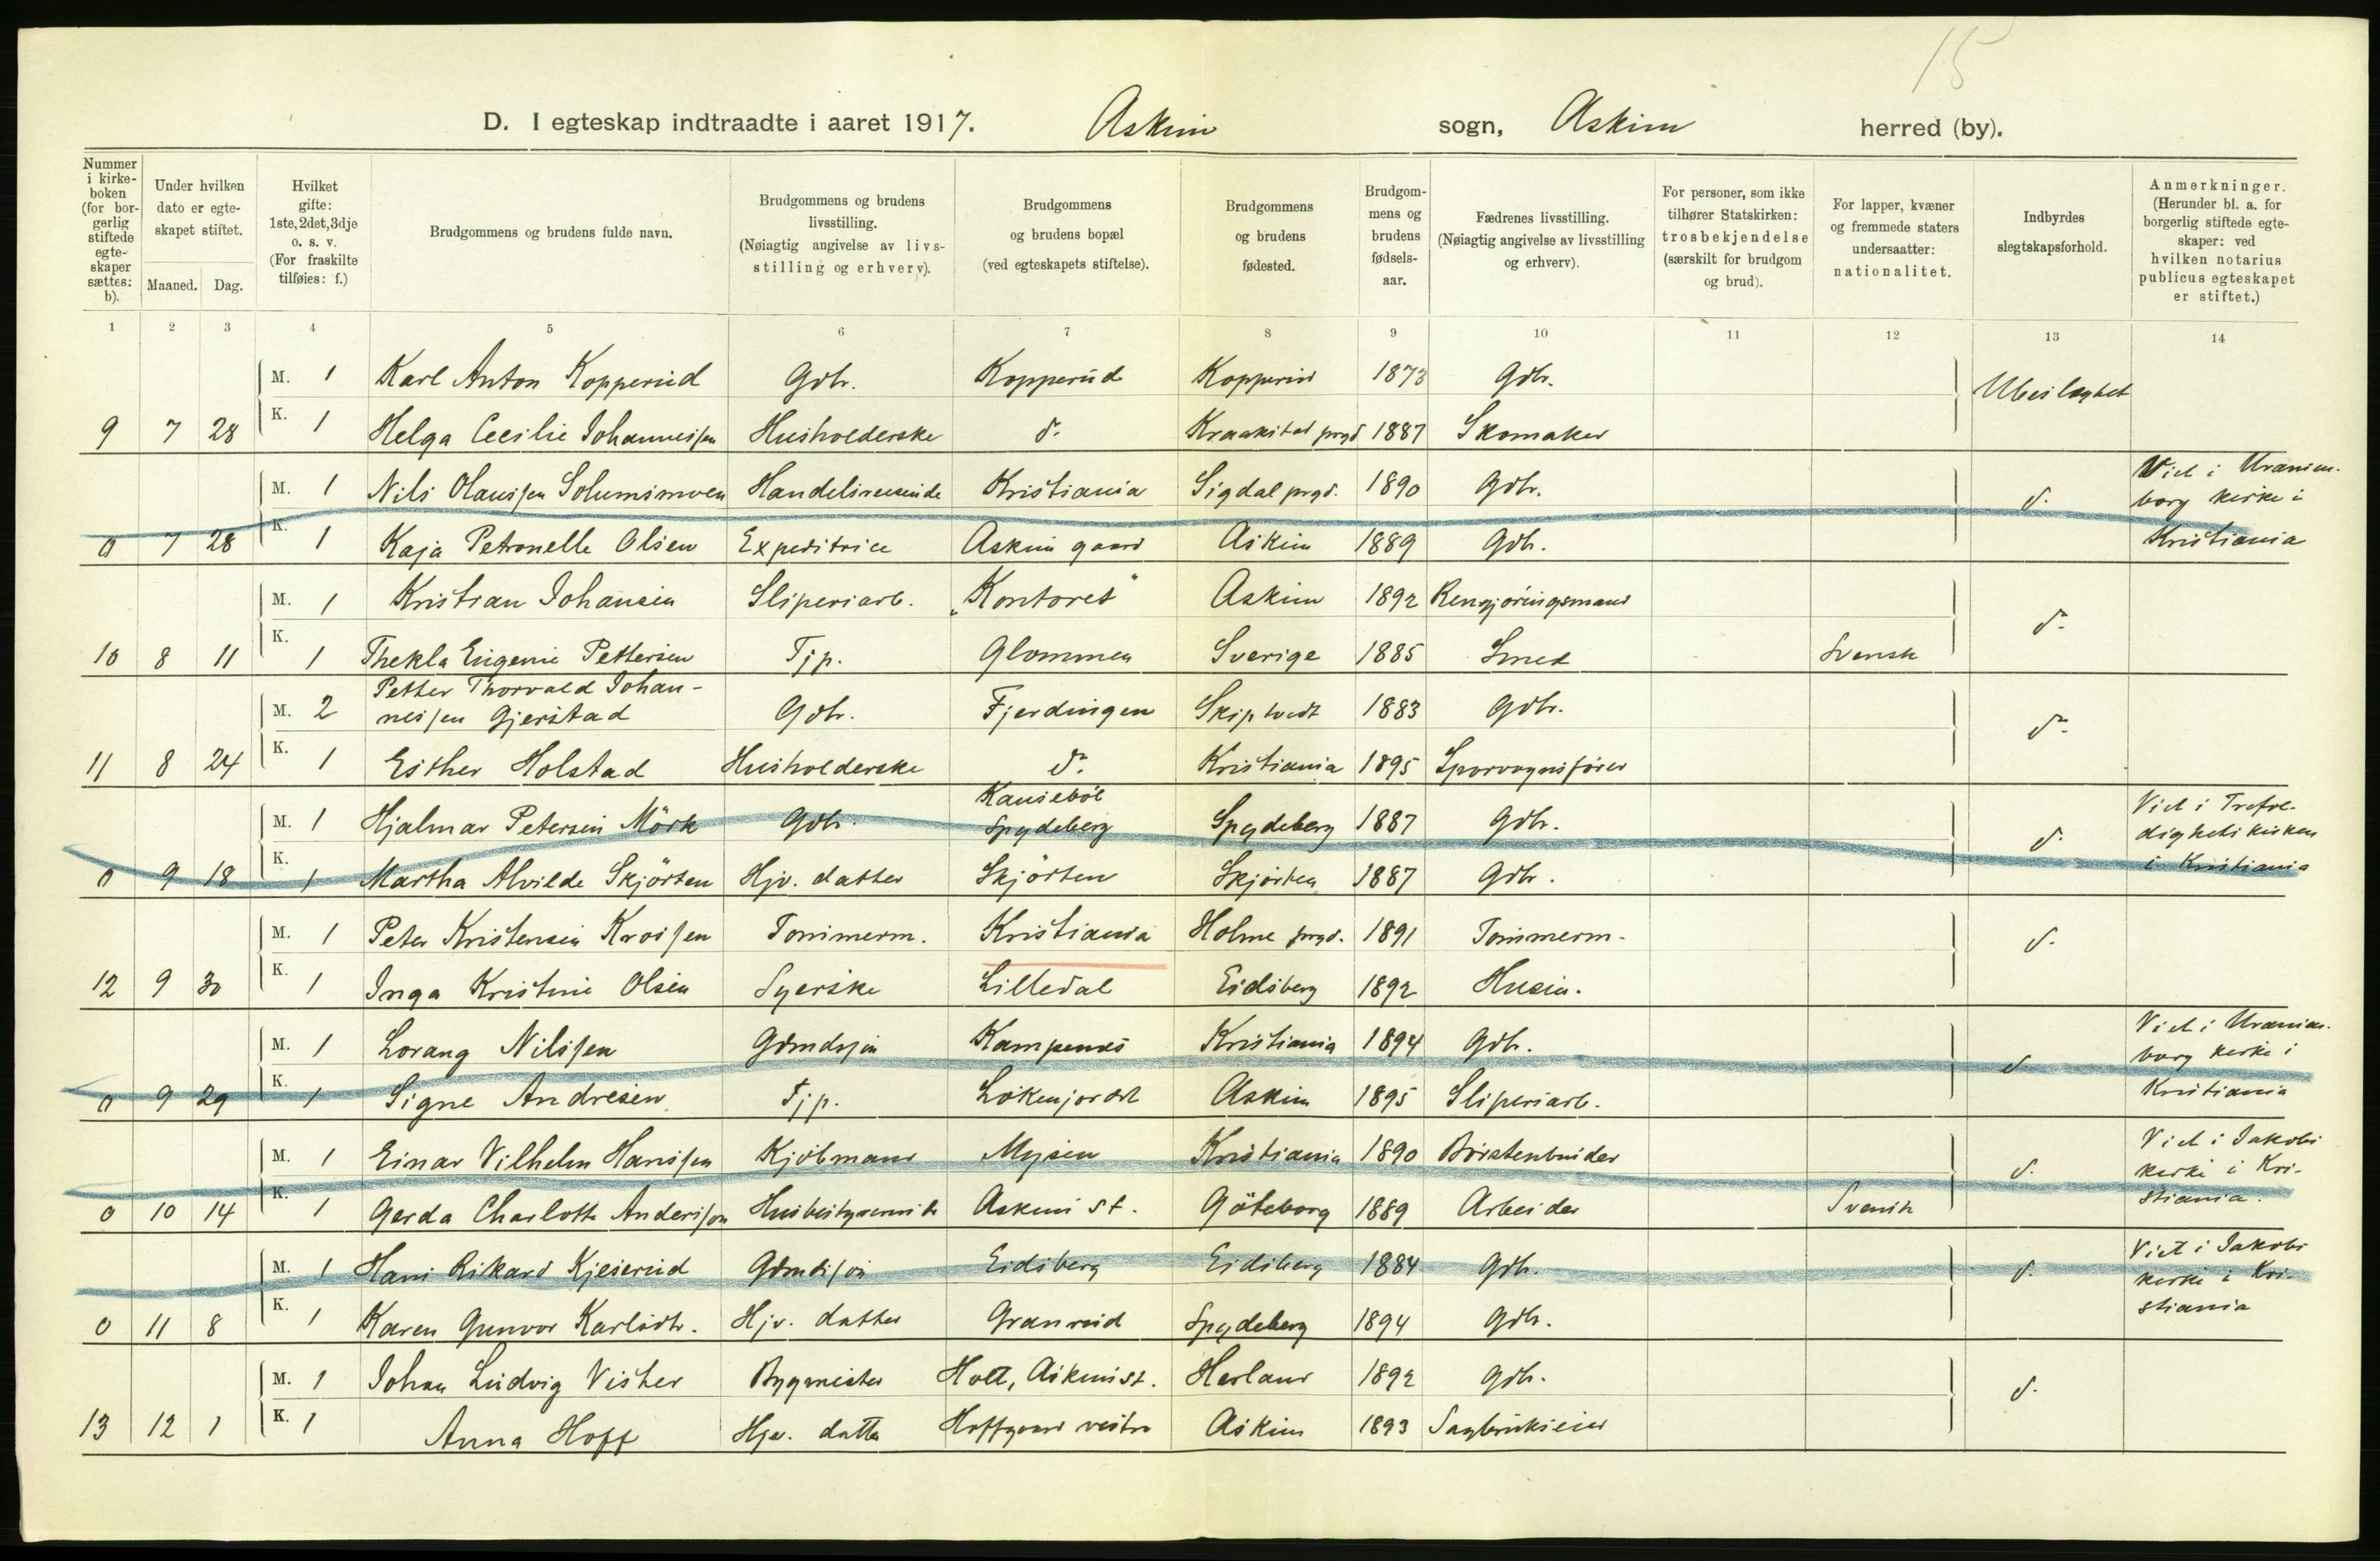 15
D. I egteskap indtraadte i aaret 1917. Askim sogn, Askim herred (by).
Nummer i kirkeboken (for borgerlig stiftede egteskaper sættes: b).
Under hvilken dato er egteskapet stiftet.
Maaned. Dag.
Hvilket gifte: 1ste, 2det, 3dje o. s. v. (For fraskilte tilføies: f.)
Brudgommens og brudens fulde navn.
Brudgommens og brudens livsstilling. (Nøiagtig angivelse av livsstilling og erhverv).
Brudgommens og brudens bopæl (ved egteskapets stiftelse).
Brudgommens og brudens fødested.
Brudgommens og brudens fødselsaar.
Fædrenes livsstilling. (Nøiagtig angivelse av livsstilling og erhverv).
For personer, som ikke tilhører Statskirken: trosbekjendelse (særskilt for brudgom og brud).
For lapper, kvæner og fremmede staters undersaatter: nationalitet.
Indbyrdes slegtskapsforhold.
Anmerkninger. (Herunder bl. a. for borgerlig stiftede egteskaper: ved hvilken notarius publicus egteskapet er stiftet.)
1 2 3 4 5 6 7 8 9 10 11 12 13 14
M. 1 Karl Anton Kopperud Gbr. Kopperud Kopperud 1873 Gbr. Ubeslægtet
9 7 28 K. 1 Helga Cecilie Johannessen Husholderske do. Kraakstad prgd 1887 Skomaker
M. 1 Nils Olaussen Solumsmoen Handelsreisende Kristiania Sigdal prgd. 1890 Gbr. do. Viet i Uranienborg kirke i Kristiania
0 7 28 K. 1 Kaja Petronelle Olsen Expeditrice Askim gaard Askim 1889 Gbr.
M. 1 Kristian Johansen Sliperiarb. „Kontoret" Askim 1892 Rengjöringsmand do.
10 8 11 K. 1 Thekla Eugenie Pettersen Tjp. Glommen Sverige 1885 Smed Svensk
M. 2 Petter Thorvald Johannessen Gjerstad Gbr. Fjerdingen Skiptvedt 1883 Gbr. do.
11 8 24 K. 1 Esther Holstad Husholderske do. Kristiania 1895 Sporvognsfører
M. 1 Hjalmar Petersen Mörk Gbr. Spydeberg Spydeberg 1887 Gbr. do. Viet i Trefoldighetskirken i Kristiania
0 9 18 K. 1 Martha Alvilde Skjörten Hjv. datter Skjörten Skjörten 1887 Gbr.
M. 1 Peter Kristensen Tömmerm. Kristiania Holme prgd. 1891 Tömmerm. do.
12 9 30 K. 1 Inga Kristine Olsen Syerske Lilledal Eidsberg 1892 Husm.
M. 1 Lorang Nilssen Gdmdssön Kampenes Kristiania 1894 Gbr. do. Viet i Uranienborg kirke i Kristiania
0 9 29 K. 1 Signe Andresen Tjp. Lökenjordet Askim 1895 Sliperiarb.
M. 1 Einar Vilhelm Hanssen Kjöbmand Mysen Kristiania 1890 Börstenbinder do. Viet i Jakobs kirke i Kristiania.
0 10 14 K. 1 Gerda Charlotte Anderson Husbestyrerinde Askim st. Göteborg 1889 Arbeider Svensk
M. 1 Hans Rikard Kjeserud Gdmdssön Eidsberg Eidsberg 1884 Gbr. do. Viet i Jakobs kirke i Kristiania
0 11 8 K. 1 Karen Gunvor Karlsdtr. Hjv. datter Granrud Spydeberg 1894 Gbr.
M. 1 Johan Ludvig Vister Bygmester Holt, Askim st. Herland 1892 Gbr. do.
13 12 1 K. 1 Anna Hoff Hjv. datter Hoffgaard vestre Askim 1893 Sagbrukseier